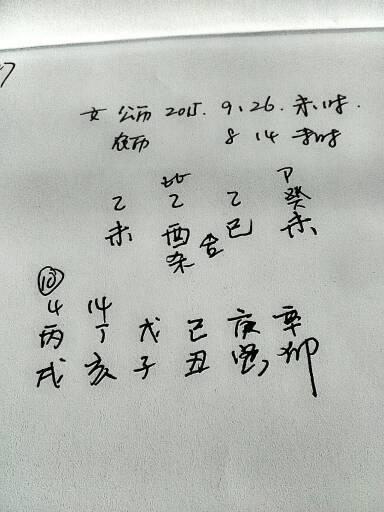 女 公历 2015. 9.26. 未时.
农历 8 14 未时
比 P
乙 乙 乙 癸
未 酉 巳 未
杀 合
10
4 14
丙 丁 戊 己 庚 辛
戌 亥 子 丑 寅 卯